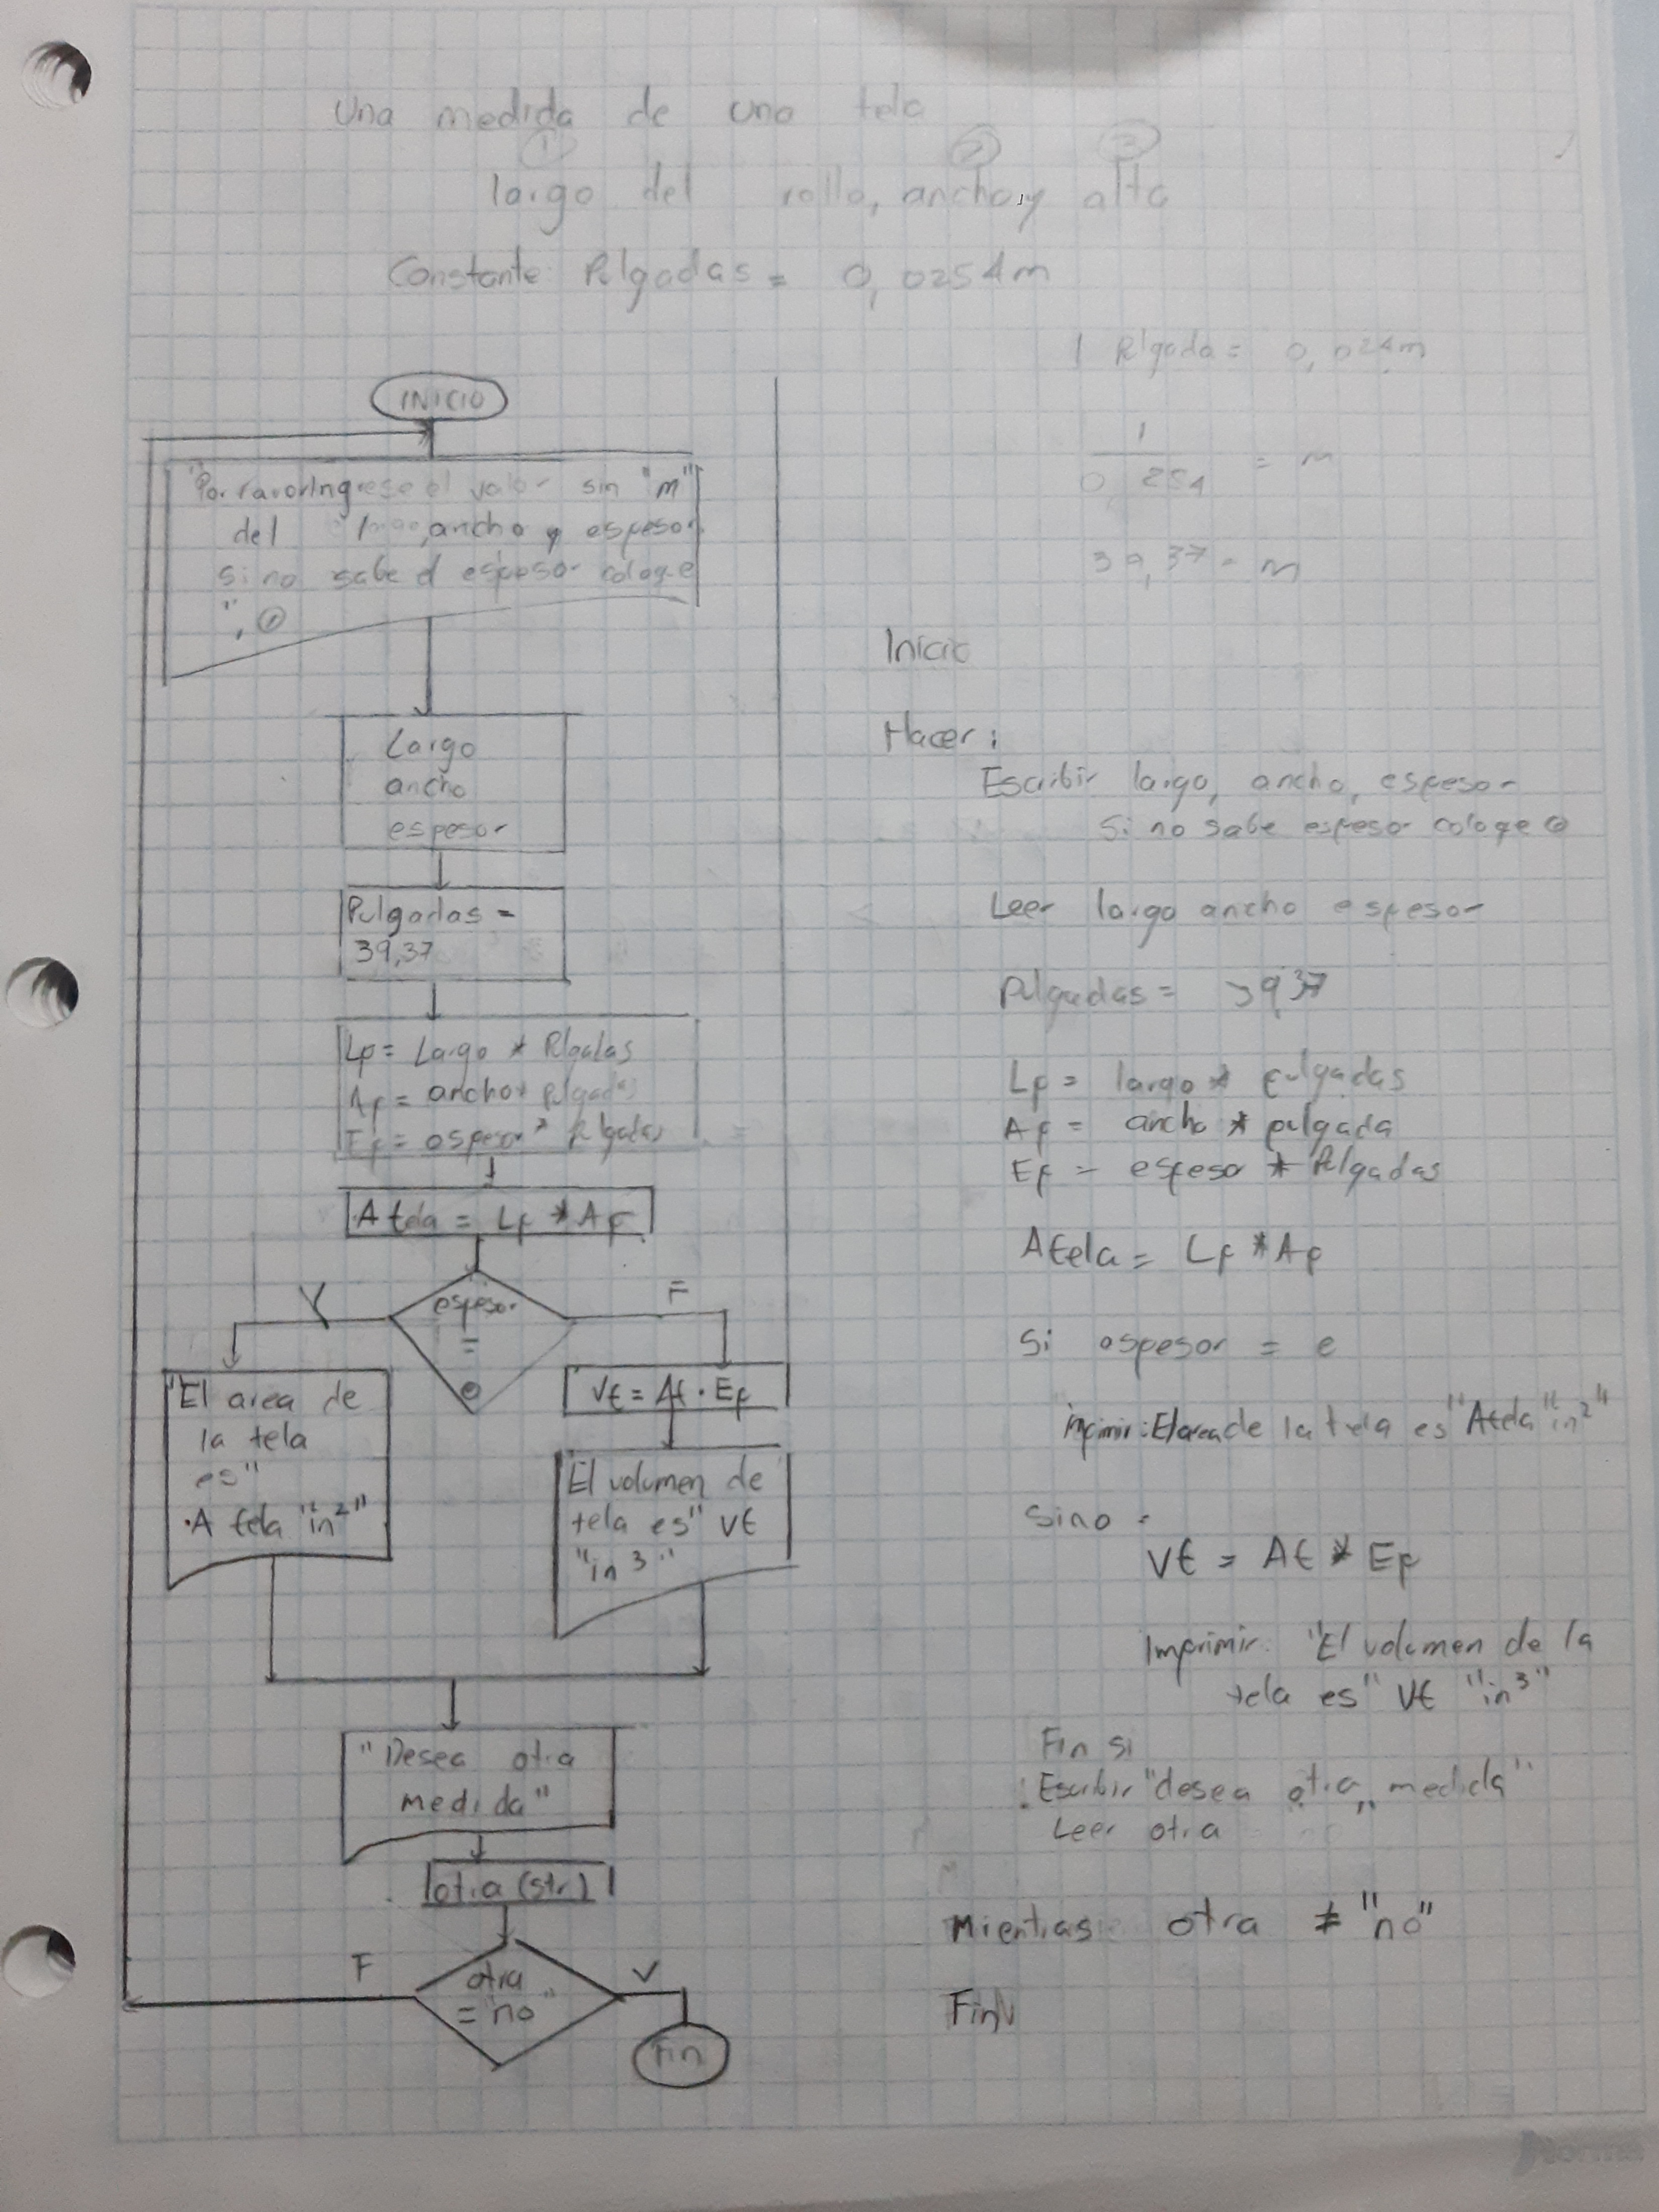 Una medida de una tela
① ② ③
largo del rollo, ancho, y alto
Constante: Pulgadas = 0,0254m
1 Pulgada = 0,024m
1
0,254 = m
39,37 = m
INICIO
"Por favor Ingrese el valor sin "m"
del largo, ancho y espesor
si no sabe el espesor coloque
", 0
Largo
ancho
espesor
Pulgadas =
39,37
Lp = Largo * Pulgadas
Ap = ancho * pulgadas
Ep = espesor * Pulgadas
A tela = Lp * Ap
espesor
=
0
V
F
"El area de
la tela
es"
A tela "in²"
Vt = At . Ep
El volumen de
tela es" Vt
"in 3"
"Desea otra
medida"
otra (str)
otra
= "no"
F
V
Fin
Inicio
Hacer:
Escribir largo, ancho, espesor
Si no sabe espesor coloqe 0
Leer largo ancho espesor
Pulgadas = 39,37
Lp = largo * pulgadas
Ap = ancho * pulgada
Ep = espeso * Pulgadas
Atela = Lp * Ap
Si espesor = e
imprimir: El area de la tela es "Atela "in²"
Sino:
Vt = At * Ep
Imprimir: "El volumen de la
tela es" Vt "in³"
Fin si
Escribir "desea otra medida"
Leer otra
Mientras otra ≠ "no"
Fin